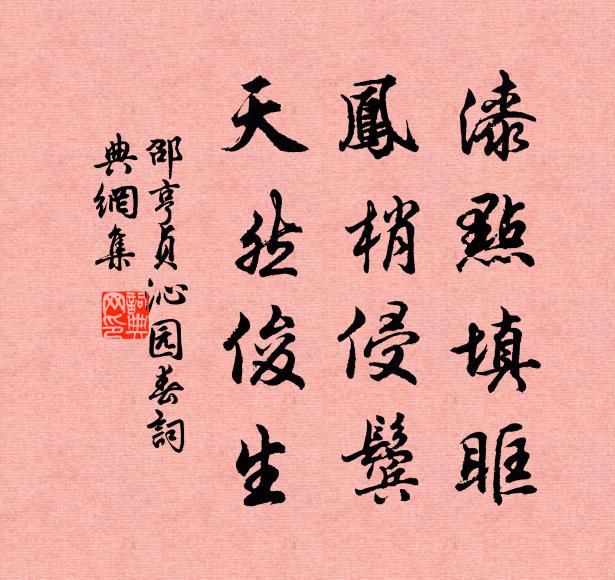 漆點填眶
鳳梢侵鬢
天然俊生
邵亨貞沁园春詞
典網集
詞典网印